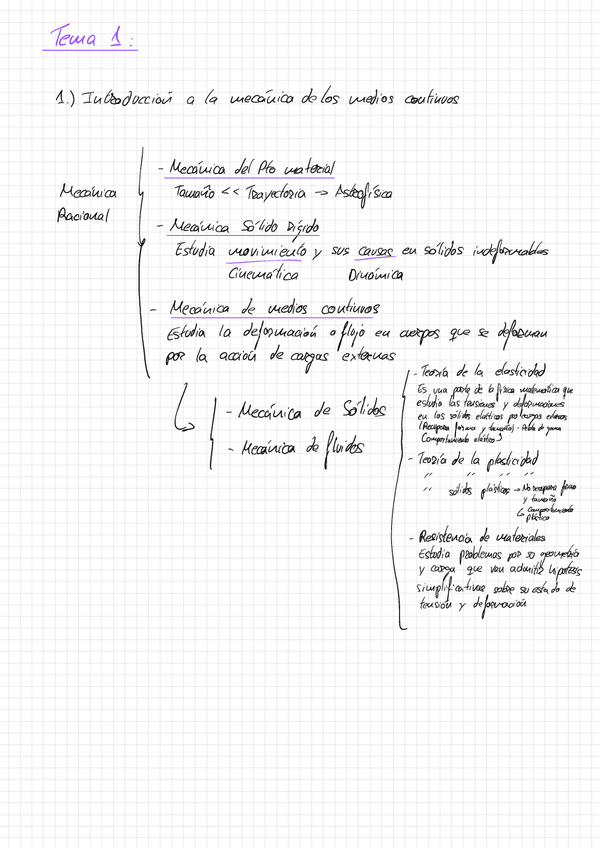 Tema 1:
1.) Introducción a la mecánica de los medios continuos
Mecánica
Racional
- Mecánica del Pto material
Tamaño << Trayectoria → Astrofísica
- Mecánica Sólido Rígido
Estudia movimiento y sus causas en sólidos indeformables
Cinemática Dinámica
- Mecánica de medios continuos
Estudia la deformación o flujo en cuerpos que se deforman
por la acción de cargas externas
- Mecánica de Sólidos
- Mecánica de fluidos
- Teoría de la elasticidad
Es una parte de la física matemática que
estudia las tensiones y deformaciones
en los sólidos elásticos por cargas externas
(Recupera forma y tamaño). Pelota de goma
Comportamiento elástico
- Teoría de la plasticidad
" " " "
" sólidos plásticos → No recupera forma
y tamaño
↳ Comportamiento
plástico
- Resistencia de materiales
Estudia problemas por su geometría
y carga que van admitir hipótesis
simplificativas sobre su estado de
tensión y deformación